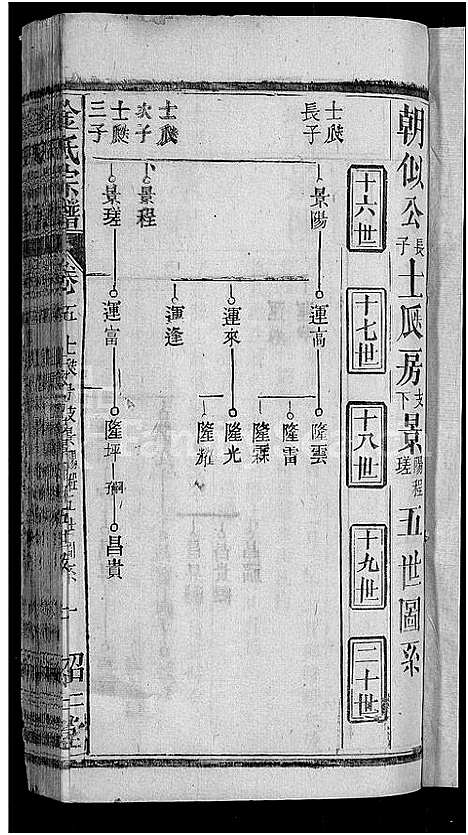 朝似公長子士𤓰房支下景陽程瑳五世圖系
十六世
十七世
十八世
十九世
二十世
士𤓰長子
景陽
運高
隆雲
隆雷
隆霖
運來
隆光
隆耀
運逢
士𤓰次子
卜景程
士𤓰三子
景瑳
運富
隆坪
嗣
昌貴
金氏宗譜
卷五